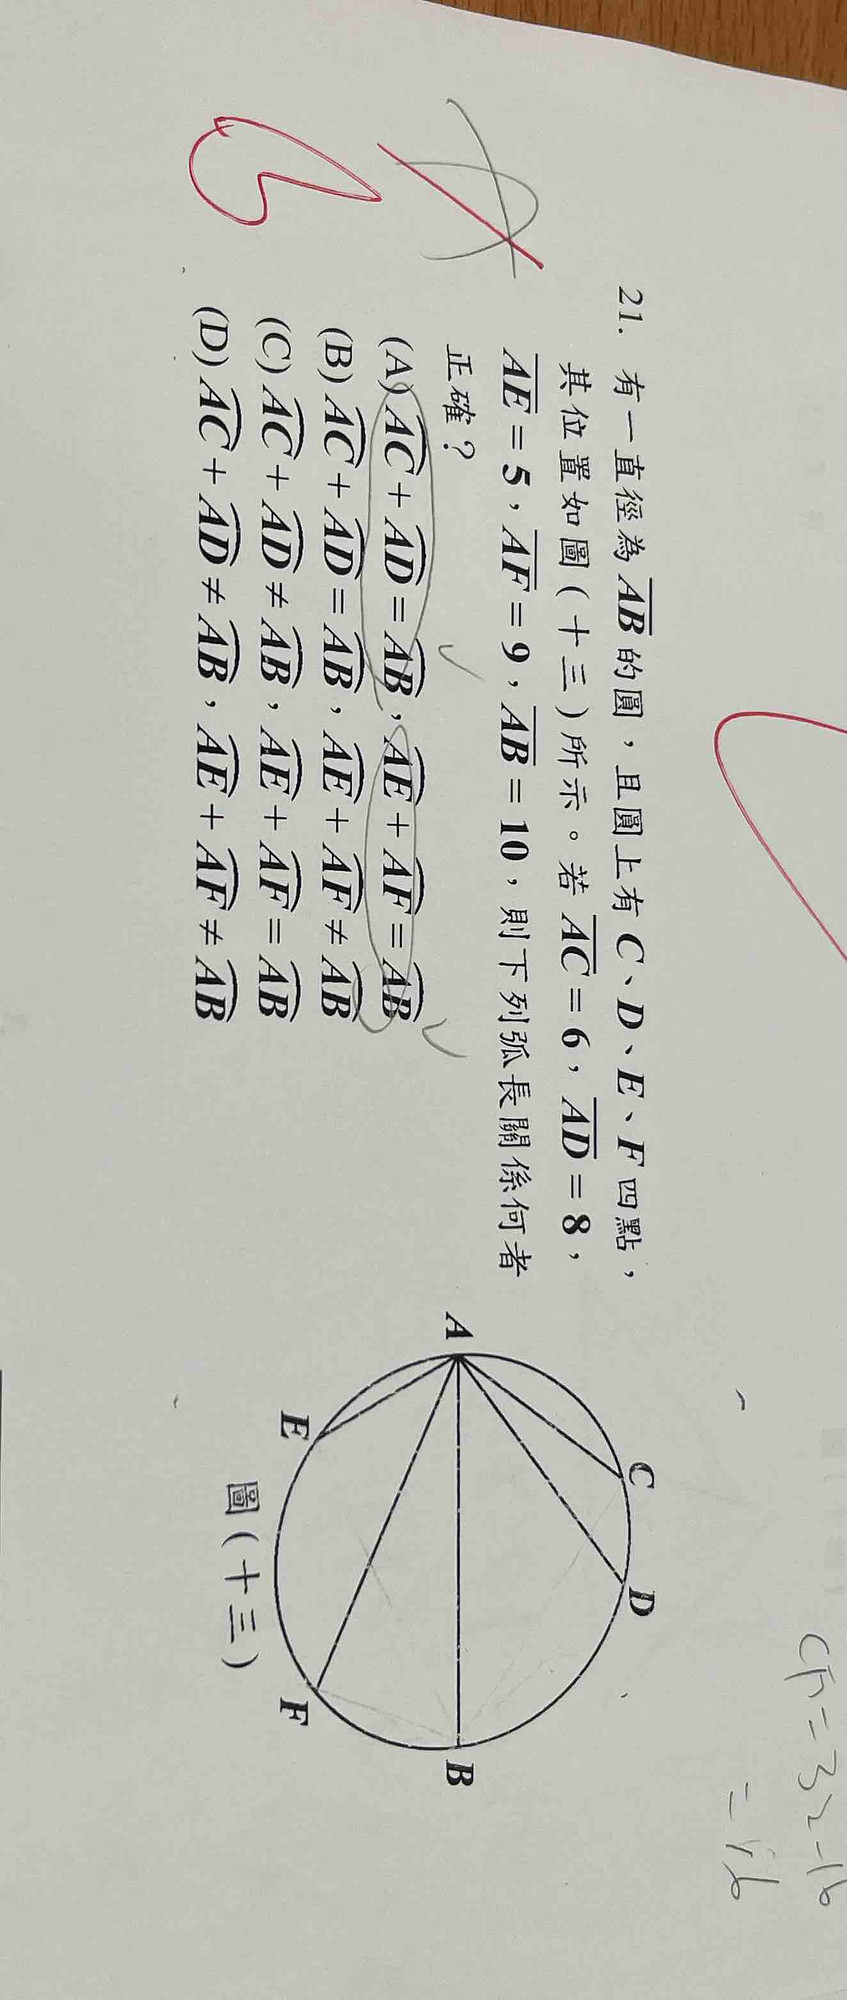 21. 有一直徑為AB的圓，且圓上有C、D、E、F四點，
其位置如圖(十三)所示。若AC=6，AD=8，
AE=5，AF=9，AB=10，則下列弧長關係何者
正確？
(A) AC+AD=AB，AE+AF=AB
(B) AC+AD=AB，AE+AF≠AB
(C) AC+AD≠AB，AE+AF=AB
(D) AC+AD≠AB，AE+AF≠AB
A
B
C
D
E
F
圖(十三)
A
B
=32-16
=16